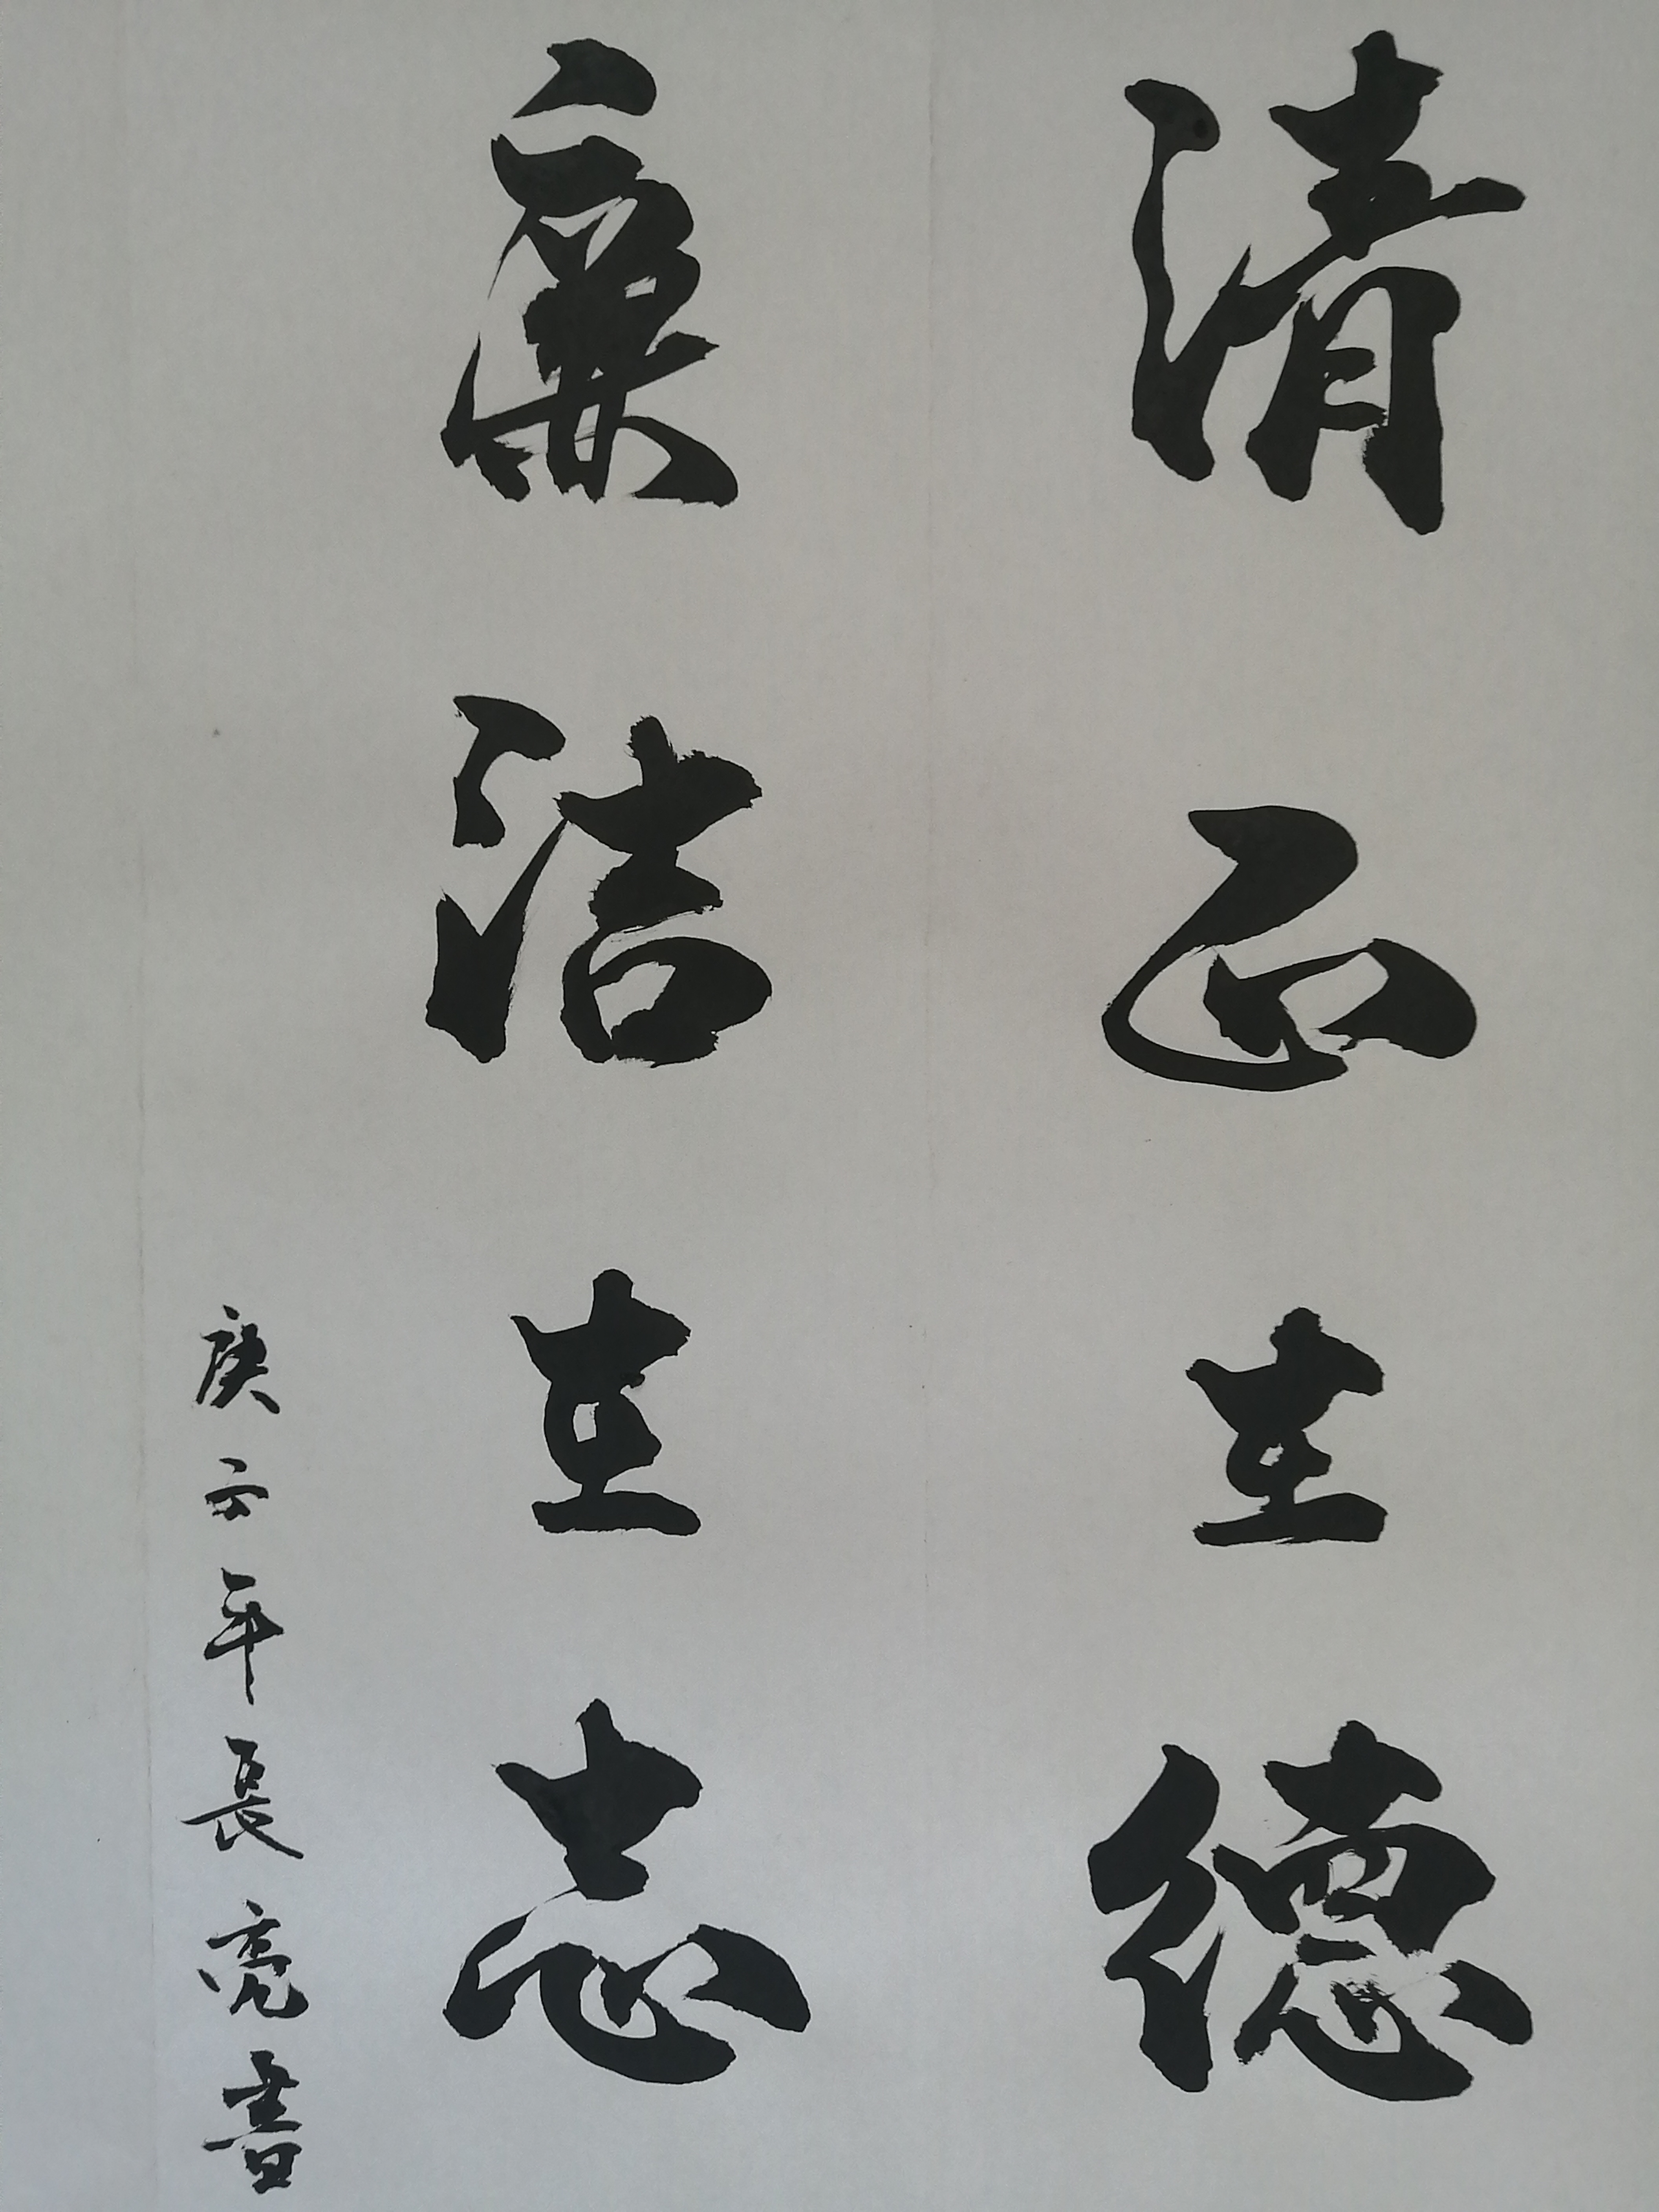 清正在德
廉洁在志
庚子年長亮書